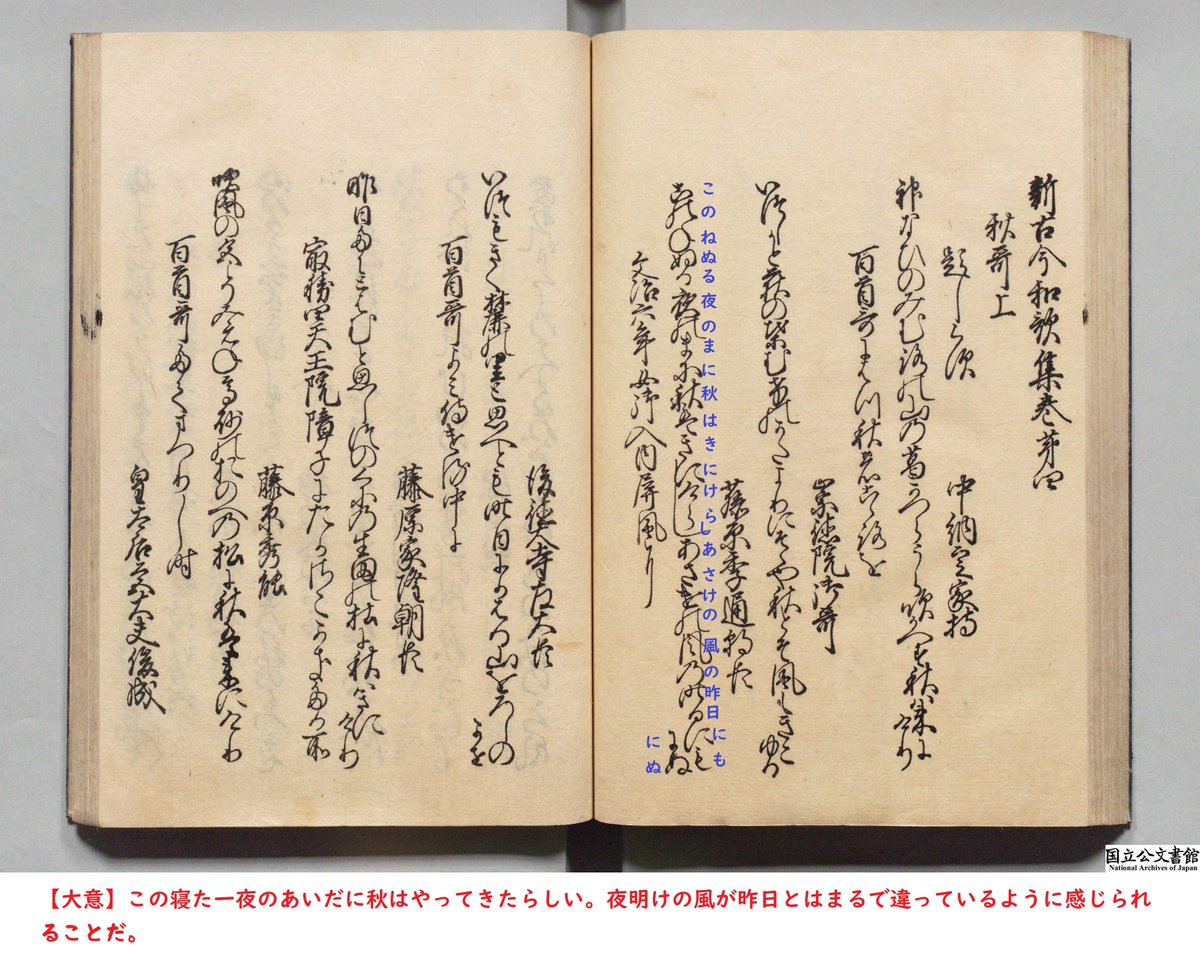 新古今和歌集巻第四
秋哥上
題しらす
中納言家持
神なひのみむろの山の葛かつらうら吹かへす秋は来に
けり
百首哥にはつ秋のこゝろを
崇徳院御哥
いつしかと荻の葉むけのかたよりにそゝや秋とそ風もきこ
ゆる
藤原季通朝臣
このねぬる夜のまに秋はきにけらしあさけの風の昨日にも
にぬ
このねぬる夜のまに秋はきにけらしあさけの風の昨日にも
にぬ
文治六年女御入内屏風に
後徳大寺左大臣
いつもきく麓の里と思へとも昨日にかはる山おろしの
かせ
百首哥よみ侍ける中に
藤原家隆朝臣
昨日たにとはむと思しつのくにの生田の杜に秋はきに
けり
最勝四天王院障子にたかさこかきたる所
藤原秀能
吹風の色こそみえね高砂のおのへの松に秋は来にけり
百首哥たてまつりし時
皇太后宮大夫俊成
国立公文書館
National Archives of Japan
【大意】この寝た一夜のあいだに秋はやってきたらしい。夜明けの風が昨日とはまるで違っているように感じられ
ることだ。